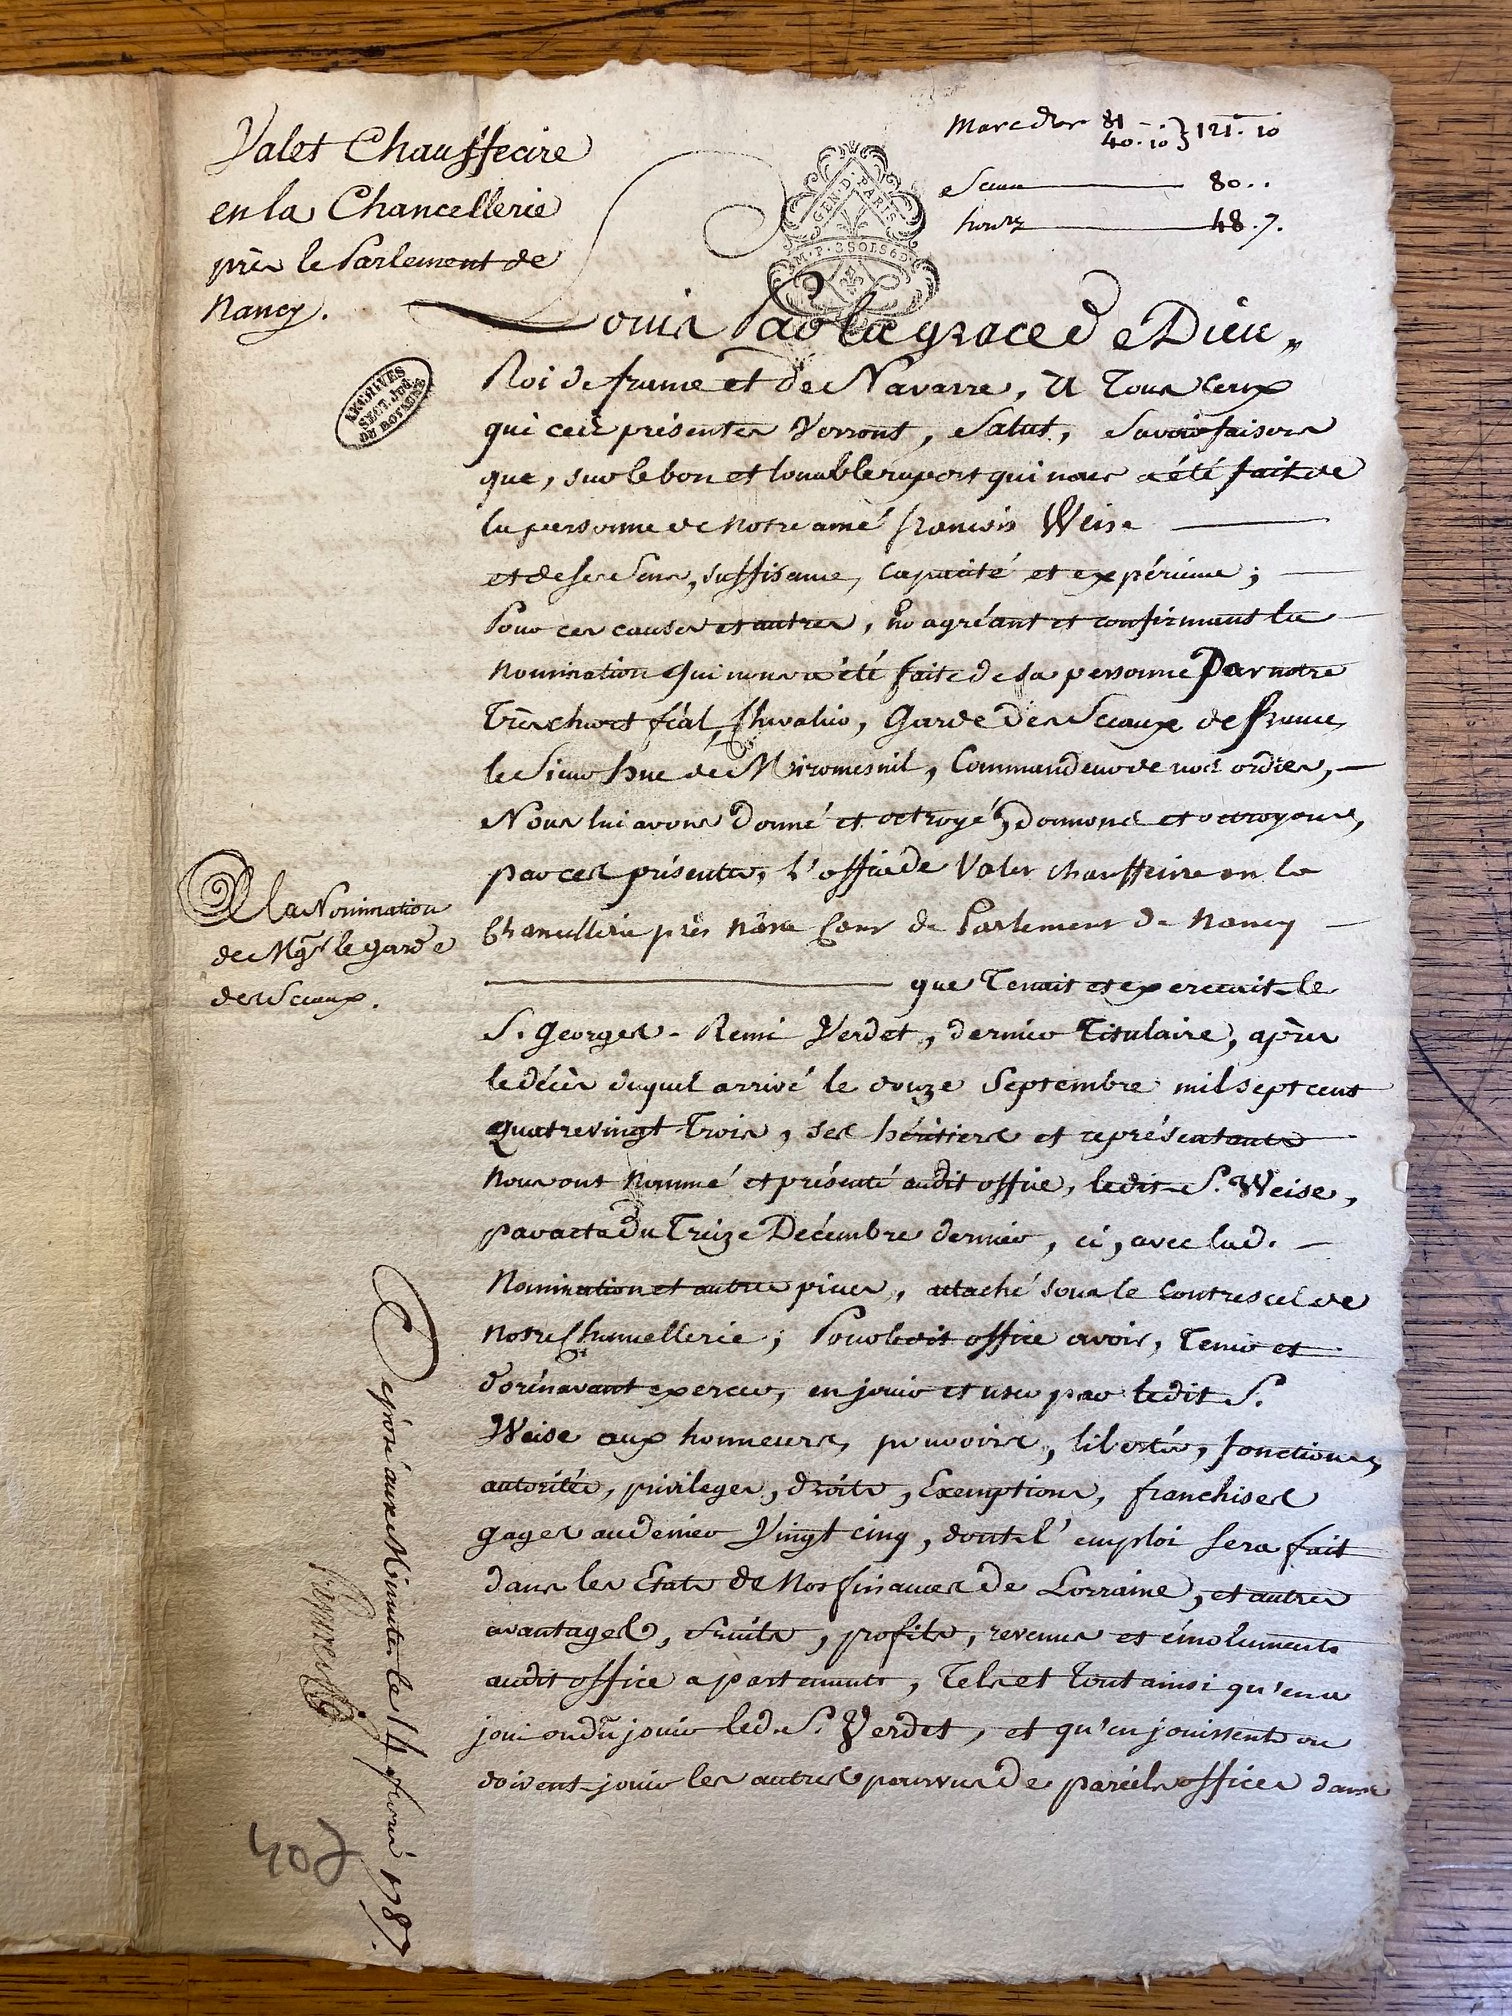 Valet Chauffecire
en la Chancellerie
près le Parlement de
Nancy.
Marc d'or 81
40. 10 } 121. 10
Sceau 80..
honres 48. 7.
GEN. D. PARIS
M. P. 3 SOLS 6 D.
ARCHIVES
SECT. JUD.
DU ROYAUME
Louis Par la grace de Dieu,,
Roi de france et de Navarre, A Tous ceux
qui ces présentes Verront, Salut, Savoir faisons
que, sur le bon et louable raport qui nous a été fait de
la personne de notre amé françois Weise
et de ses Sens, suffisance, capacité et expérience;
Pour ces causes et autres, En agréant et confirmant la
Nomination qui nous a été faite de sa personne Par notre
Très cher et féal, Chevalier, Garde des Sceaux de france,
le Sieur hue de Miromesnil, Commandeur de nos ordres,
Nous lui avons Donné et octroyé, donnons et octroyons,
par ces présentes, l'office de Valet chauffecire en la
Chancellerie près Nôtre Cour de Parlement de Nancy
que Tenait et exercait le
S. Georges-Remi Verdet, dernier Titulaire, après
le décès duquel arrivé le douze Septembre mil sept cent
quatrevingt Trois, ses héritiers et représentants
nous ont Nommé et présenté audit office, ledit S. Weise,
par acte du Treize Décembre dernier, ci, avec lad.
Nomination et autres pièces, attaché sous le Contrescel de
notre Chancellerie; Pour ledit office avoir, Tenir et
dorénavant exercer, en jouir et user par ledit S.
Weise aux honneurs, pouvoirs, libertés, fonctions,
autorités, privileges, droits, Exemptions, franchises
gages au denier Vingt cinq, dont l'emploi sera fait
dans les Etats de Nos finances de Lorraine, et autres
avantages, fruits, profits, revenus et émoluments
audit office apartenants, Tels et Tout ainsi qu'en a
joui ou dû jouir led. S. Verdet, et qu'en jouissent ou
doivent jouir les autres pourvus de pareils offices dans
A la Nomination
de Mgr le garde
des Sceaux.
Déposé aux Minutes le 14 fevrier 1787.
407